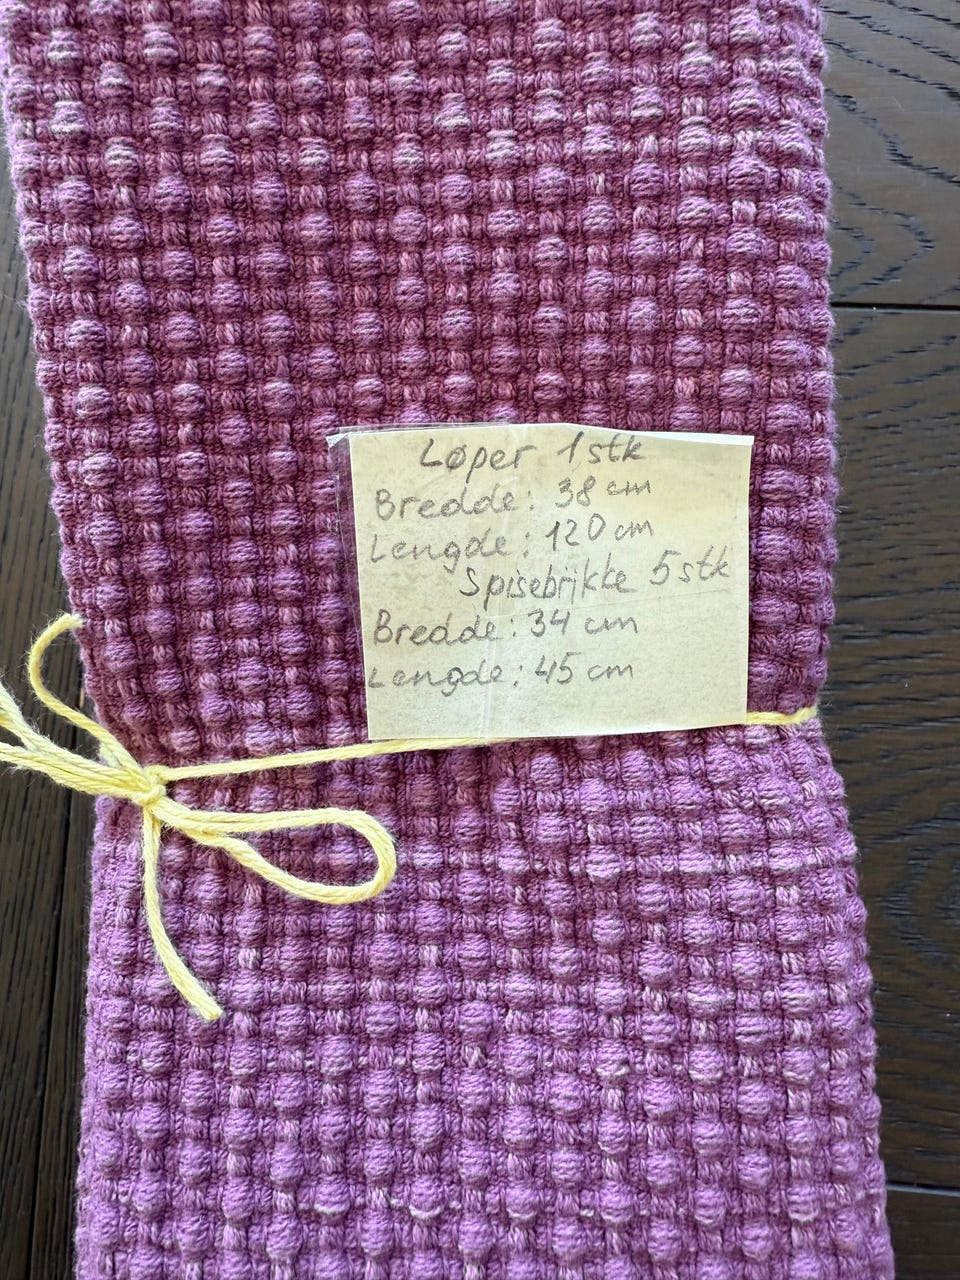 Løper 1 stk
Bredde: 38 cm
Lengde: 120 cm
Spisebrikke 5 stk
Bredde: 34 cm
Lengde: 45 cm